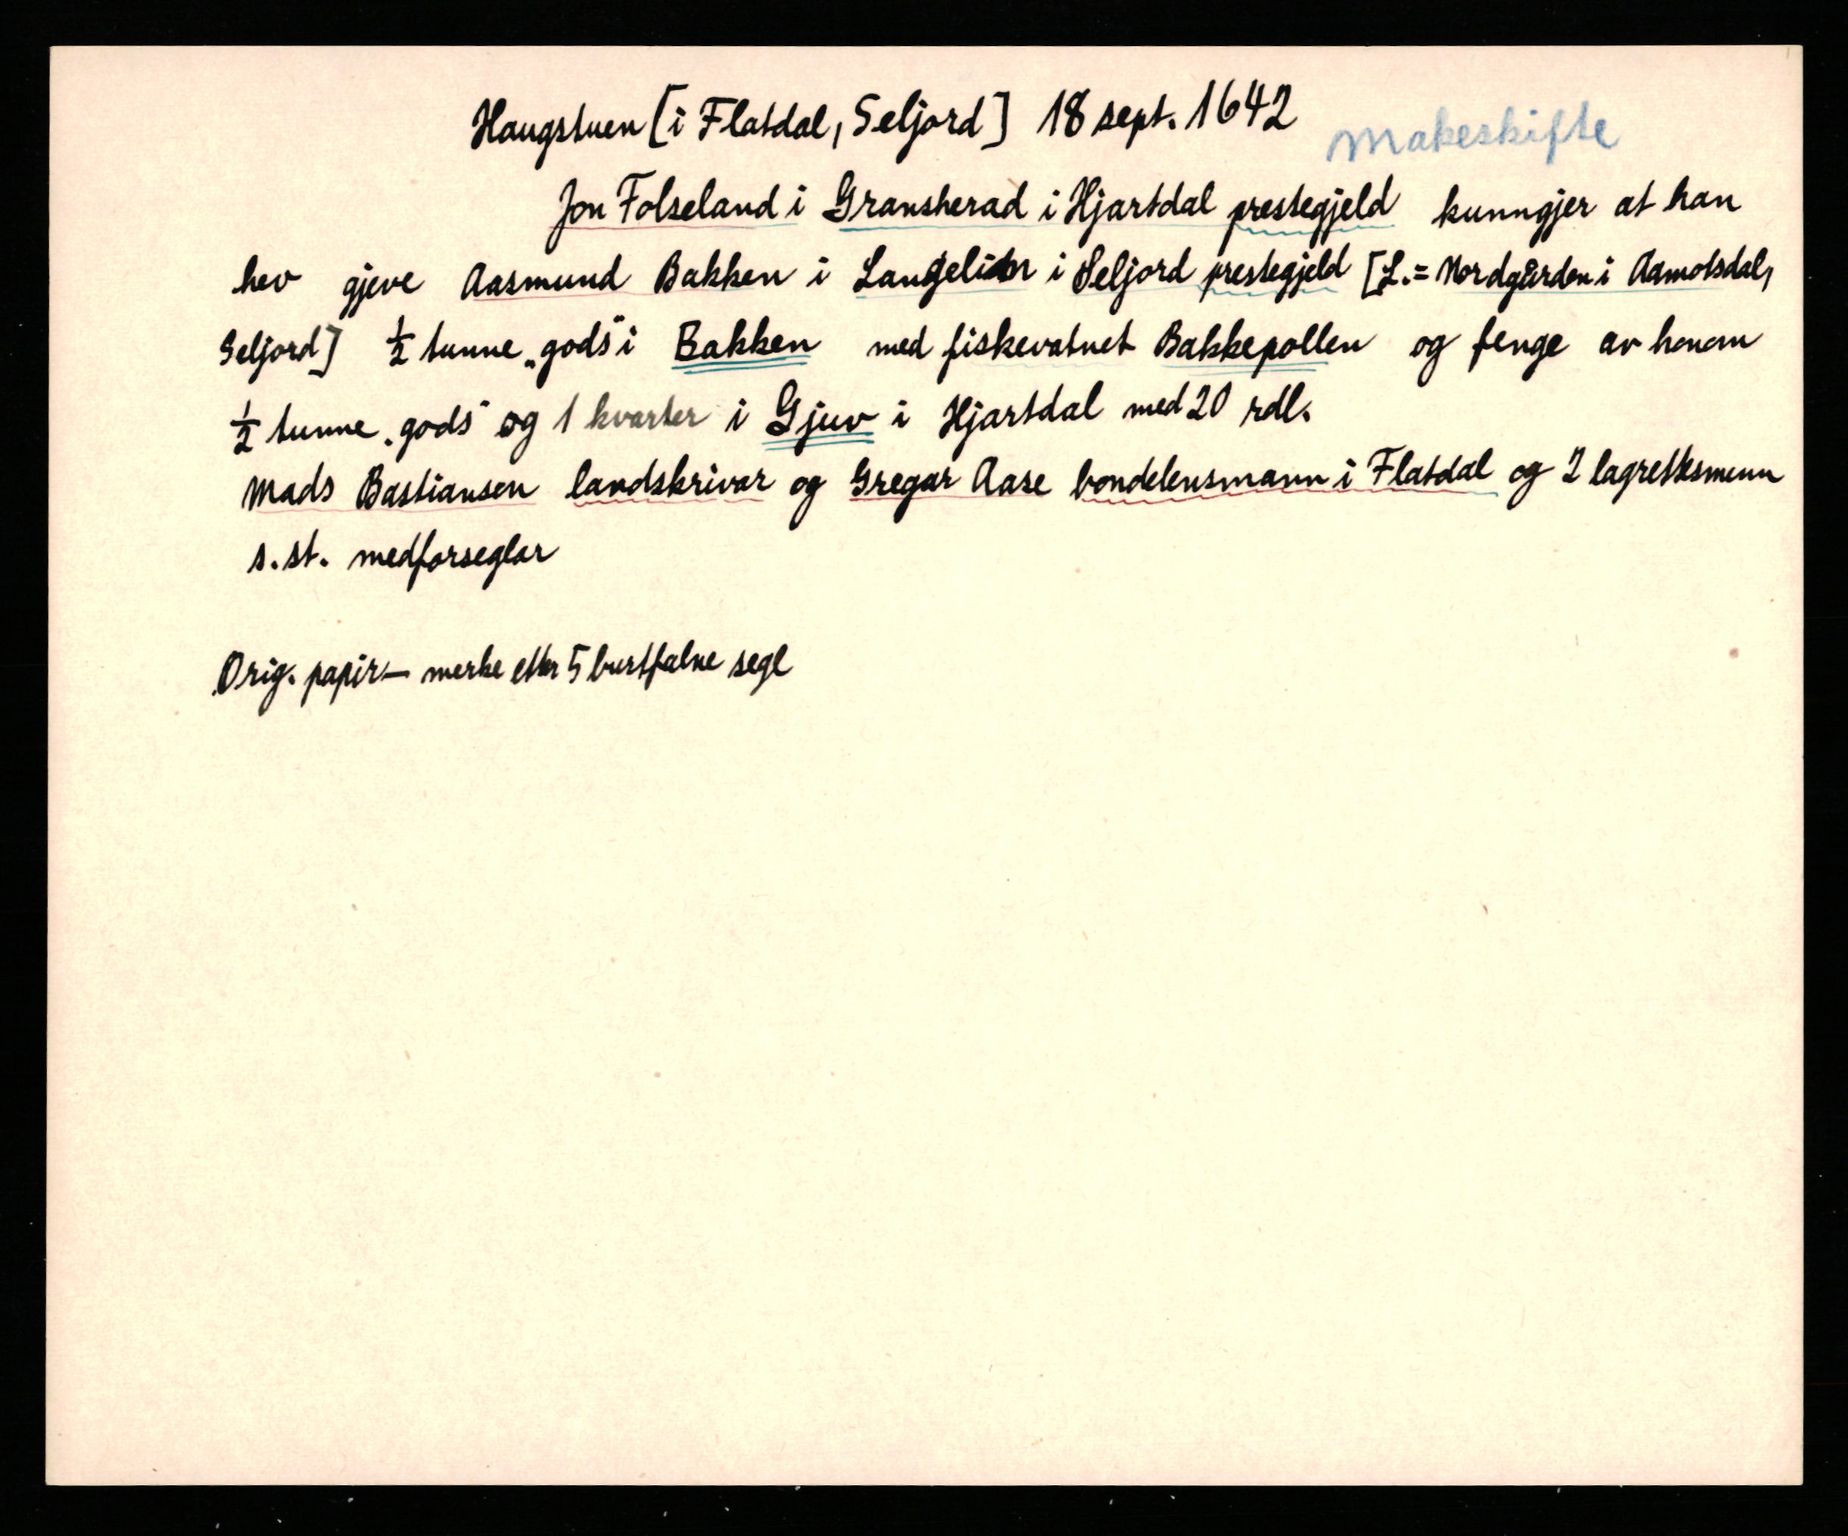 Haugstuen [i Flatdal, Seljord] 18 sept. 1642 Makeskifte
Jon Folseland i Gransherad i Hjartdal prestegjeld kunngjer at han
hev gjeve Aasmund Bakken i Langelien i Seljord prestegjeld [L. = Nordgården i Aamotsdal,
Seljord] ½ tunne „gods" i Bakken med fiskevatnet Bakkepollen og fenge av honom
½ tunne „gods" og 1 kvarter i Gjuv i Hjartdal med 20 rdl.
Mads Bastiansen landskrivar og Gregar Aase bondelensmann i Flatdal og 2 lagrettesmenn
s. st. medforseglar
Orig. papir – merke etter 5 burtfalne segl